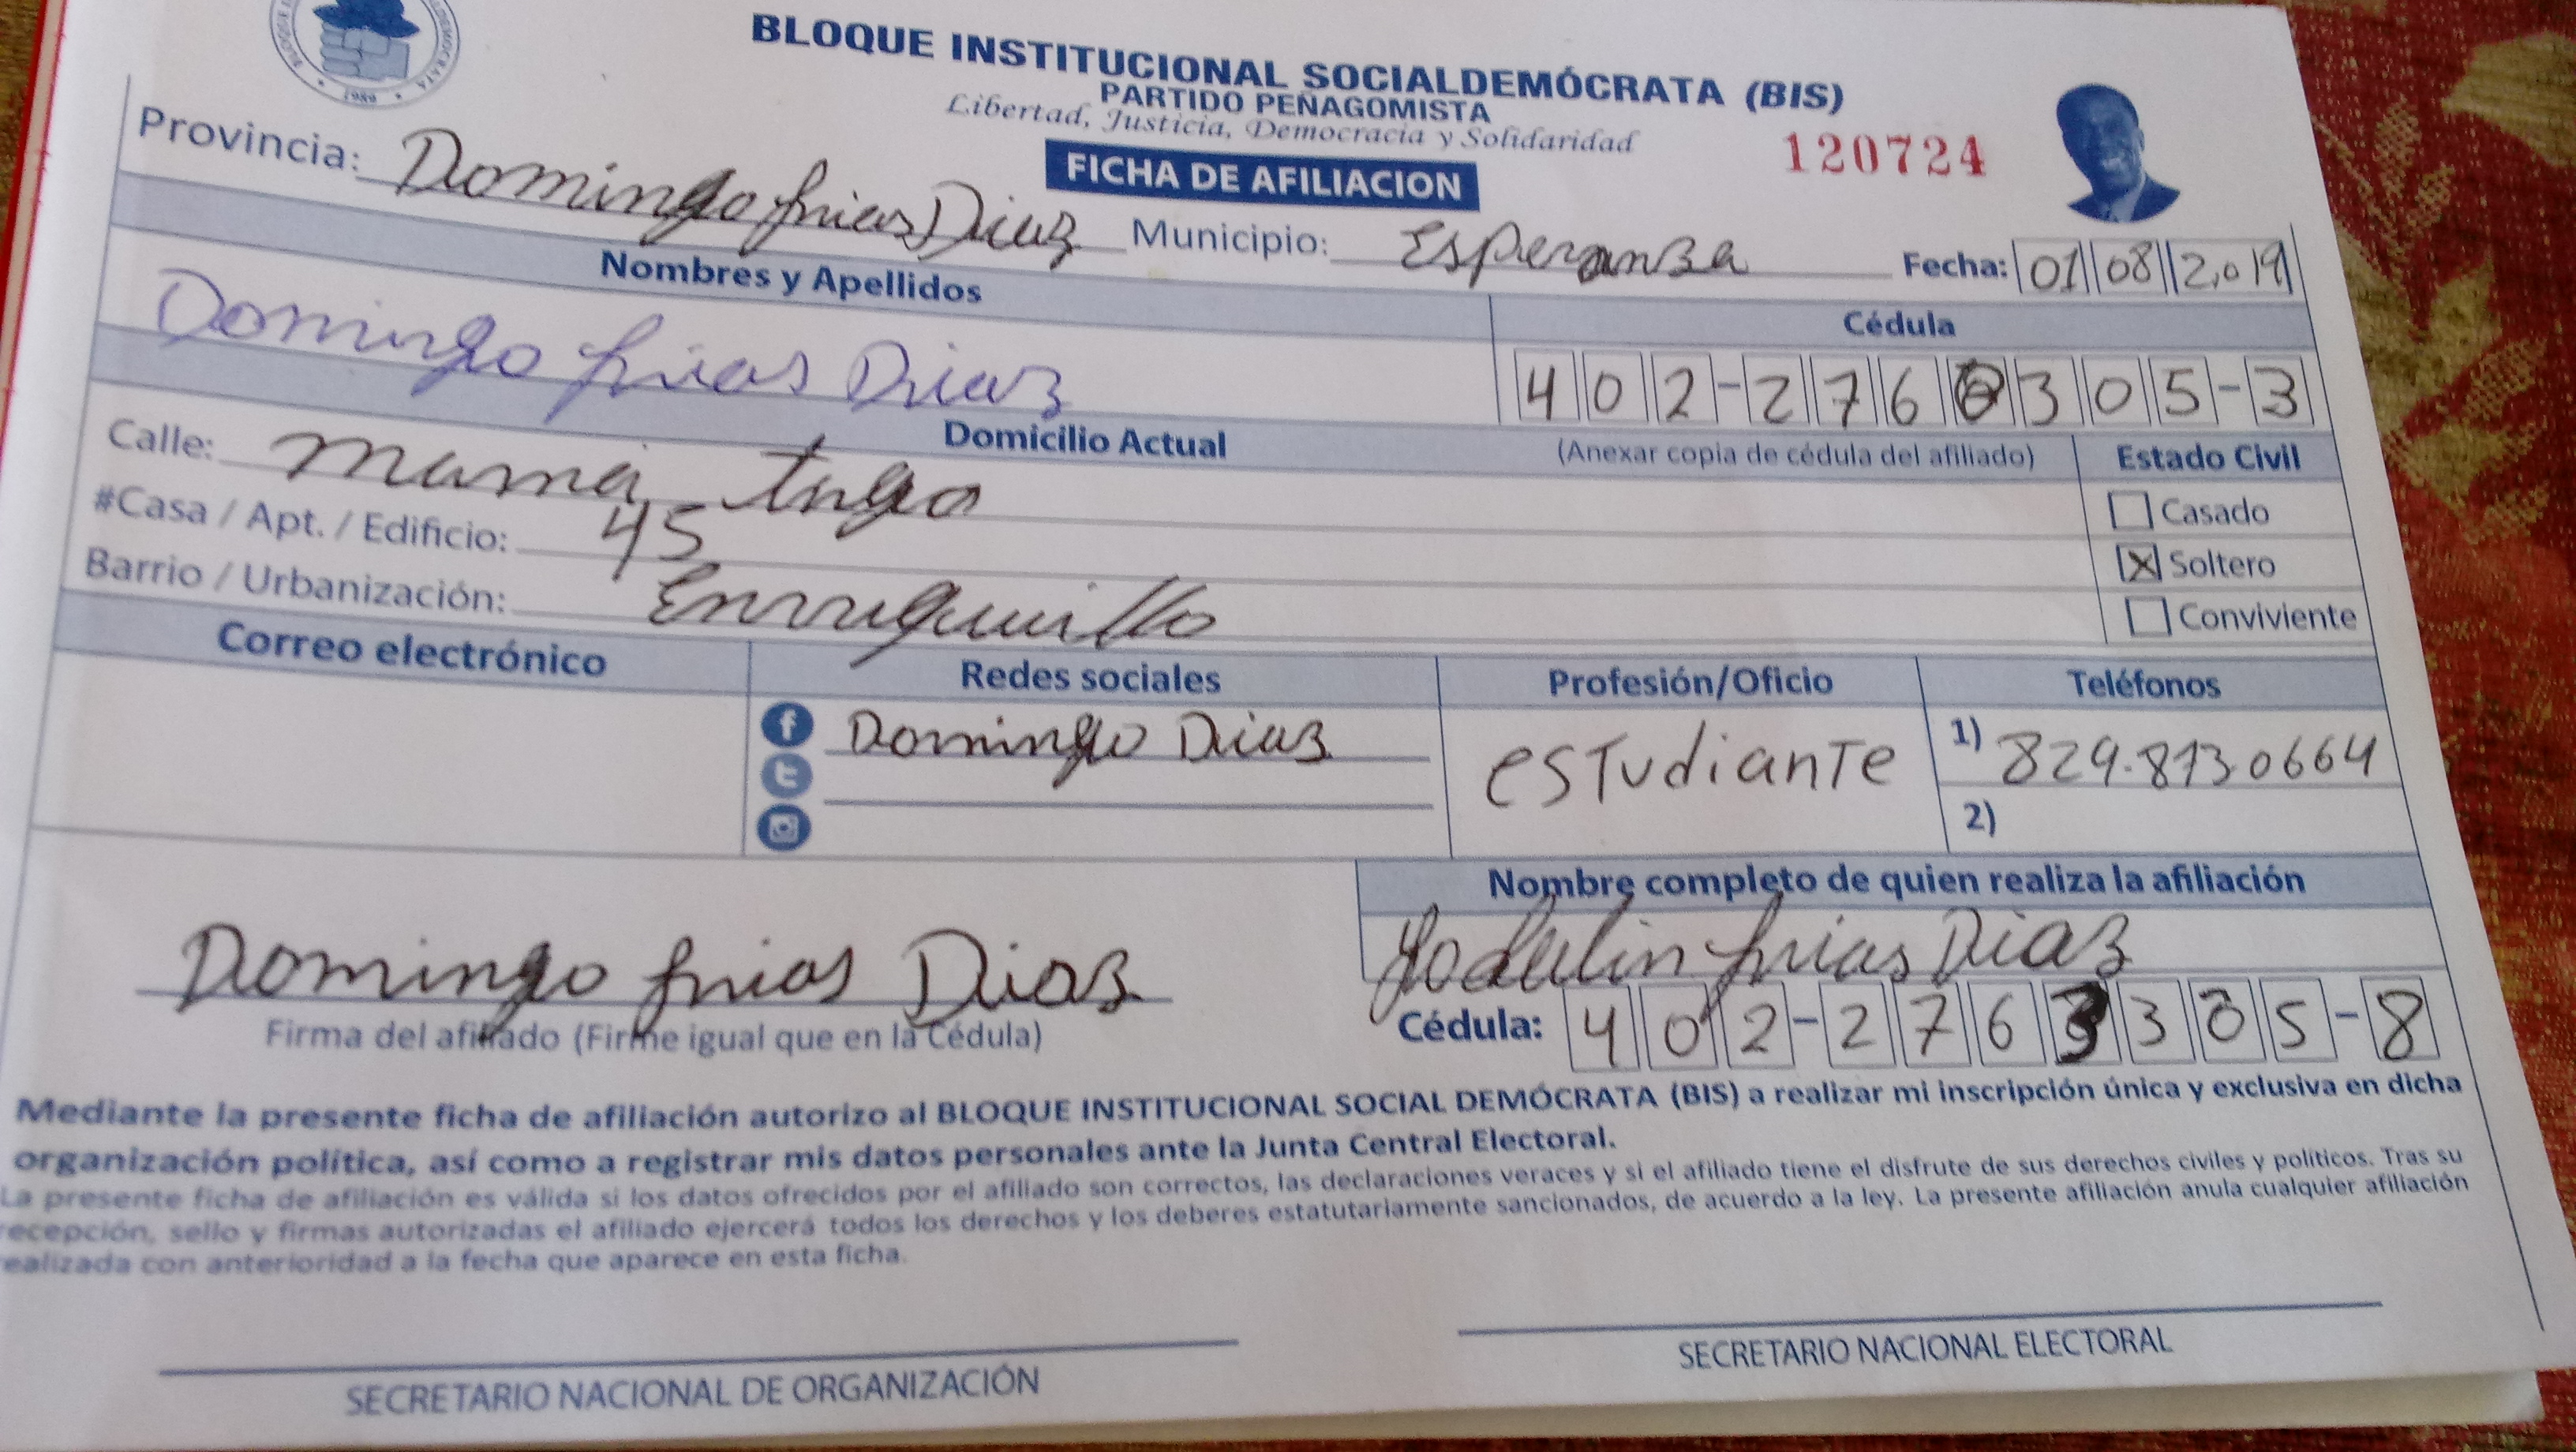 1989
BLOQUE INSTITUCIONAL SOCIALDEMÓCRATA (BIS)
PARTIDO PEÑAGOMISTA
Libertad, Justicia, Democracia y Solidaridad
120724
FICHA DE AFILIACION
Provincia: Domingo frias Diaz Municipio: Esperanza Fecha: 01 08 2,019
Nombres y Apellidos
Cédula
Domingo frias Diaz
402-2760305-3
Domicilio Actual
(Anexar copia de cédula del afiliado)
Estado Civil
Calle: mama tngo
Casado
#Casa / Apt. / Edificio: 45
X Soltero
Barrio / Urbanización: Enrriquillo
Conviviente
Correo electrónico
Redes sociales
Profesión/Oficio
Teléfonos
Domingo Diaz
estudiante
1) 829.873.0664
2)
Nombre completo de quien realiza la afiliación
frias Diaz
Domingo frias Diaz
Firma del afiliado (Firme igual que en la Cédula)
Cédula: 402-2763305-8
Mediante la presente ficha de afiliación autorizo al BLOQUE INSTITUCIONAL SOCIAL DEMÓCRATA (BIS) a realizar mi inscripción única y exclusiva en dicha
organización política, así como a registrar mis datos personales ante la Junta Central Electoral.
La presente ficha de afiliación es válida si los datos ofrecidos por el afiliado son correctos, las declaraciones veraces y si el afiliado tiene el disfrute de sus derechos civiles y políticos. Tras su
recepción, sello y firmas autorizadas el afiliado ejercerá todos los derechos y los deberes estatutariamente sancionados, de acuerdo a la ley. La presente afiliación anula cualquier afiliación
realizada con anterioridad a la fecha que aparece en esta ficha.
SECRETARIO NACIONAL DE ORGANIZACIÓN
SECRETARIO NACIONAL ELECTORAL